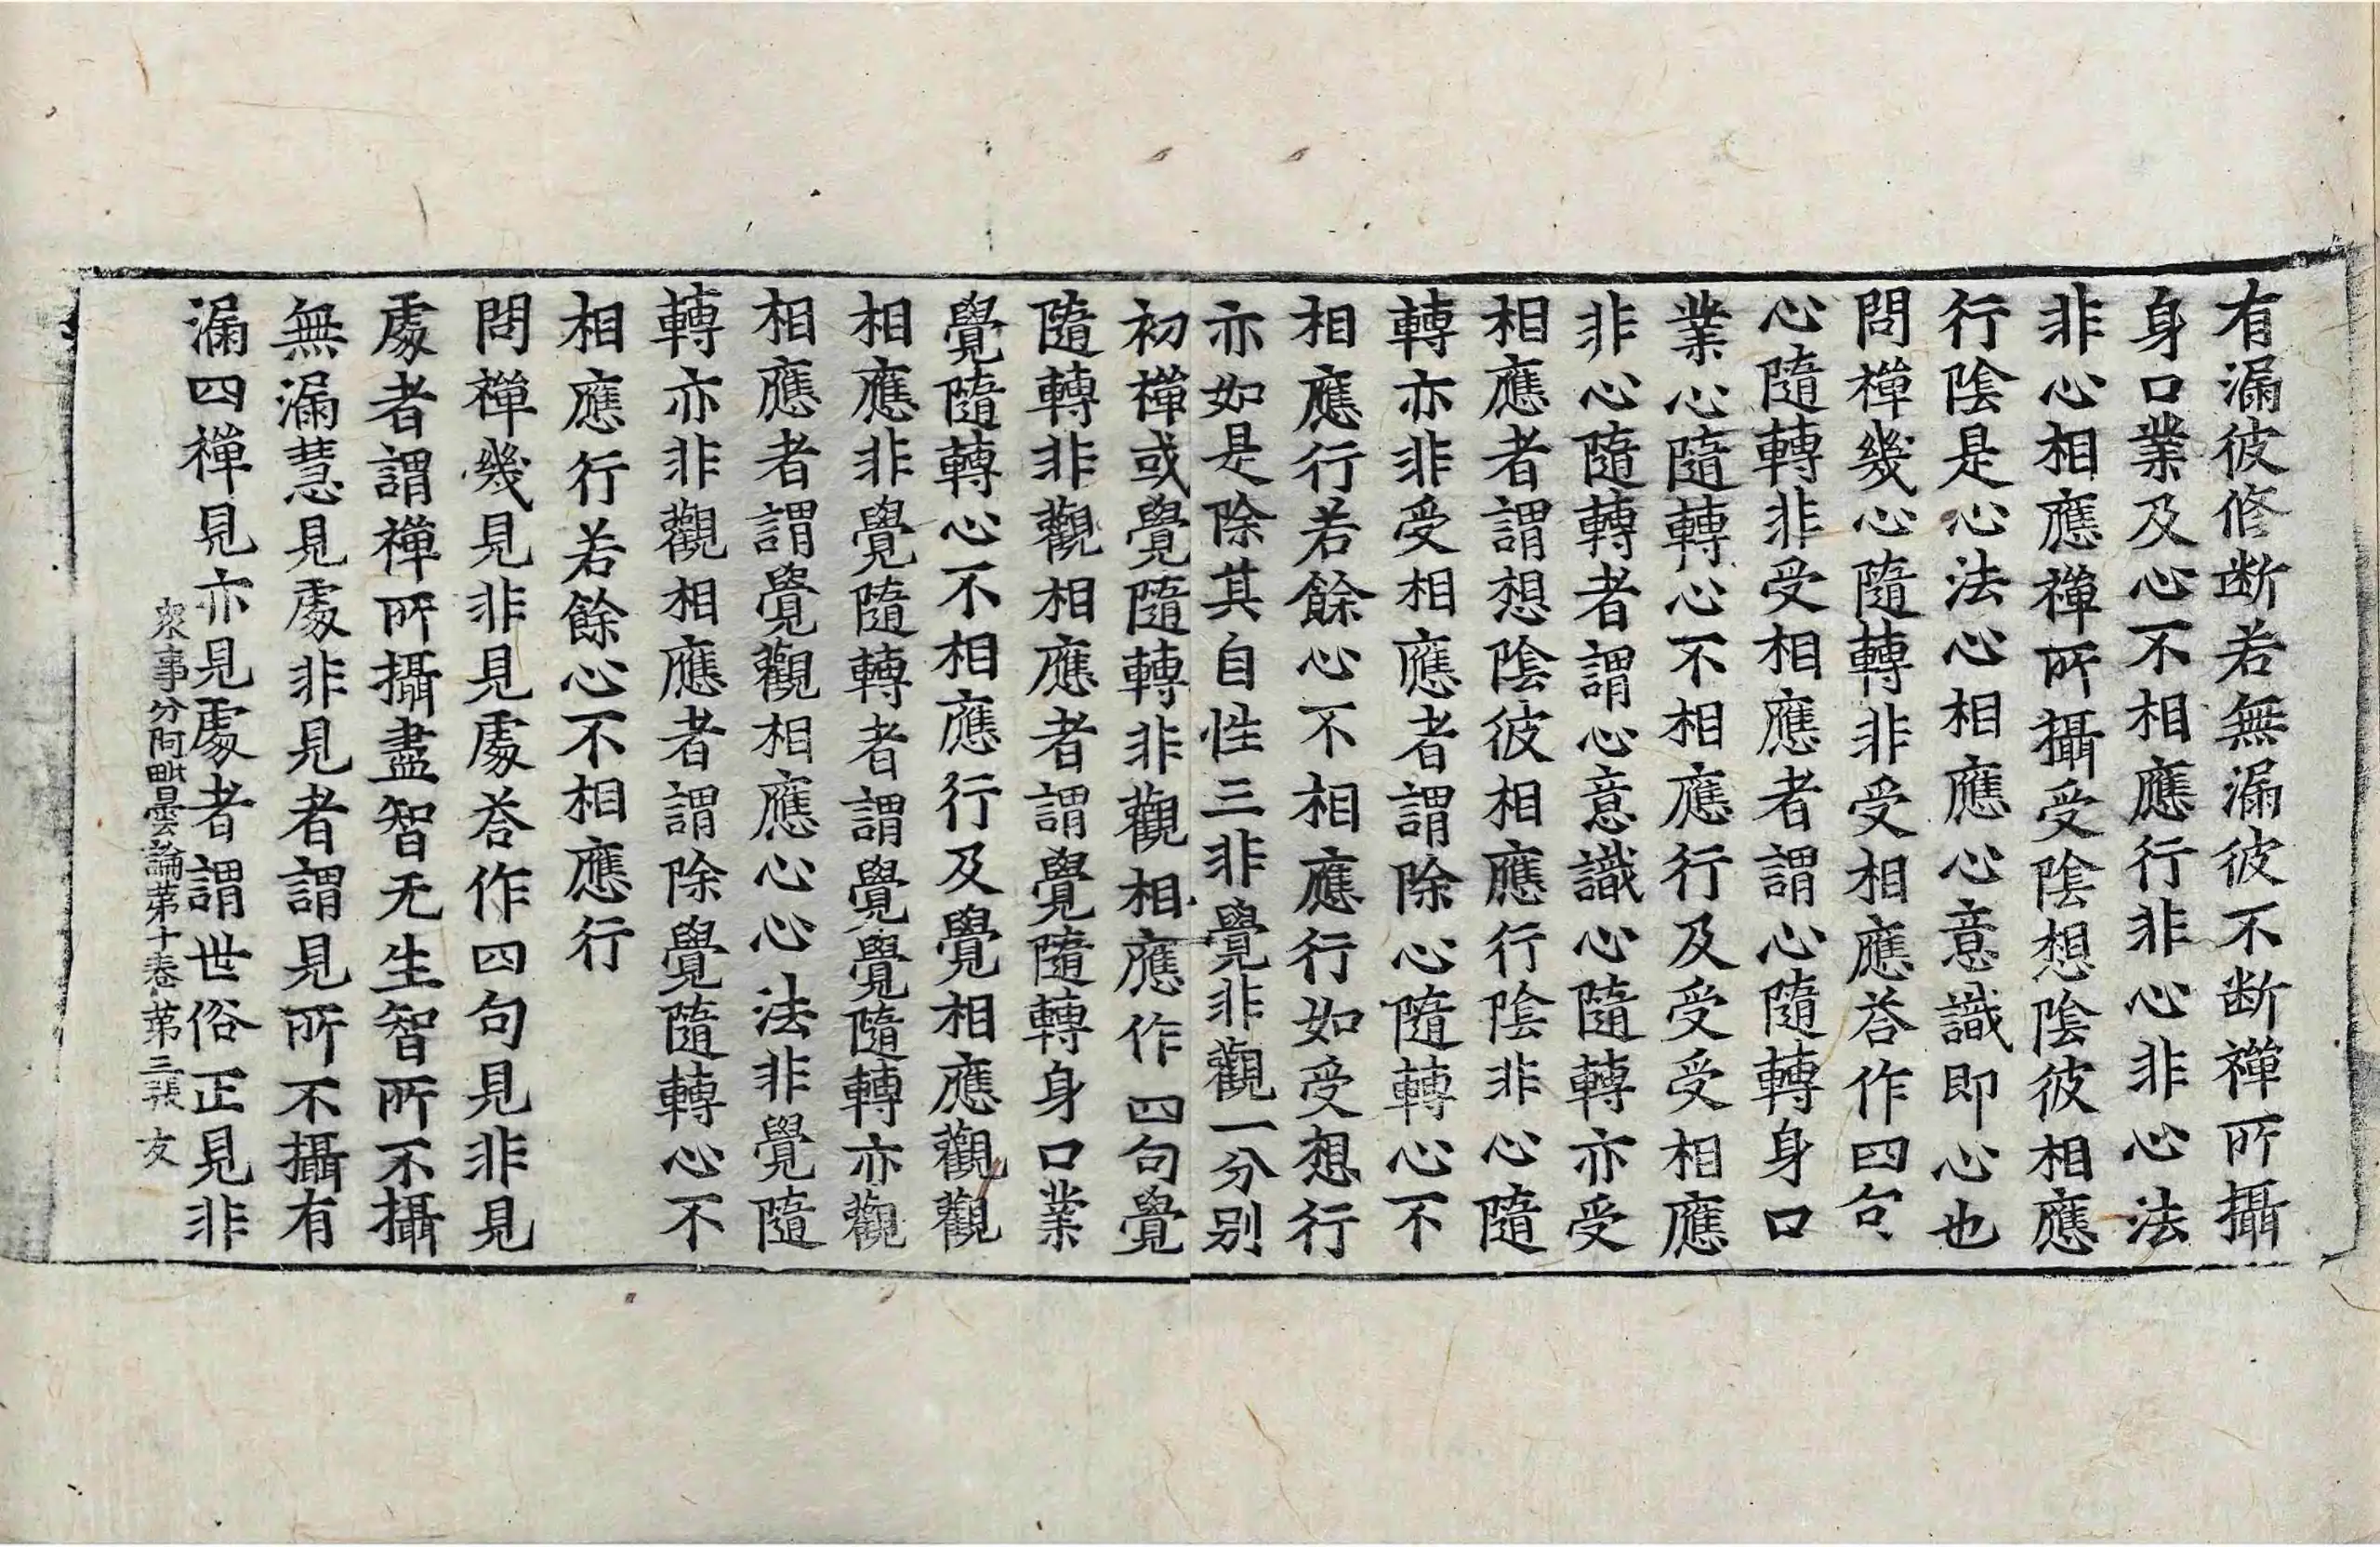 有漏彼修断若無漏彼不断禪所攝
身口業及心不相應行非心非心法
非心相應禪所攝受陰想陰彼相應
行陰是心法心相應心意識即心也
問禪幾心隨轉非受相應荅作四句
心隨轉非受相應者謂心隨轉身口
業心隨轉心不相應行及受受相應
非心隨轉者謂心意識心隨轉亦受
相應者謂想陰彼相應行陰非心隨
轉亦非受相應者謂除心隨轉心不
相應行若餘心不相應行如受想行
亦如是除其自性三非覺非觀一分別
初禪或覺隨轉非觀相應作四句覺
隨轉非觀相應者謂覺隨轉身口業
覺隨轉心不相應行及覺相應觀觀
相應非覺隨轉者謂覺覺隨轉亦觀
相應者謂覺觀相應心心法非覺隨
轉亦非觀相應者謂除覺隨轉心不
相應行若餘心不相應行
問禪幾見非見處荅作四句見非見
處者謂禪所攝盡智无生智所不攝
無漏慧見處非見者謂見所不攝有
漏四禪見亦見處者謂世俗正見非
衆事分阿毗曇論第十卷 第三張 友